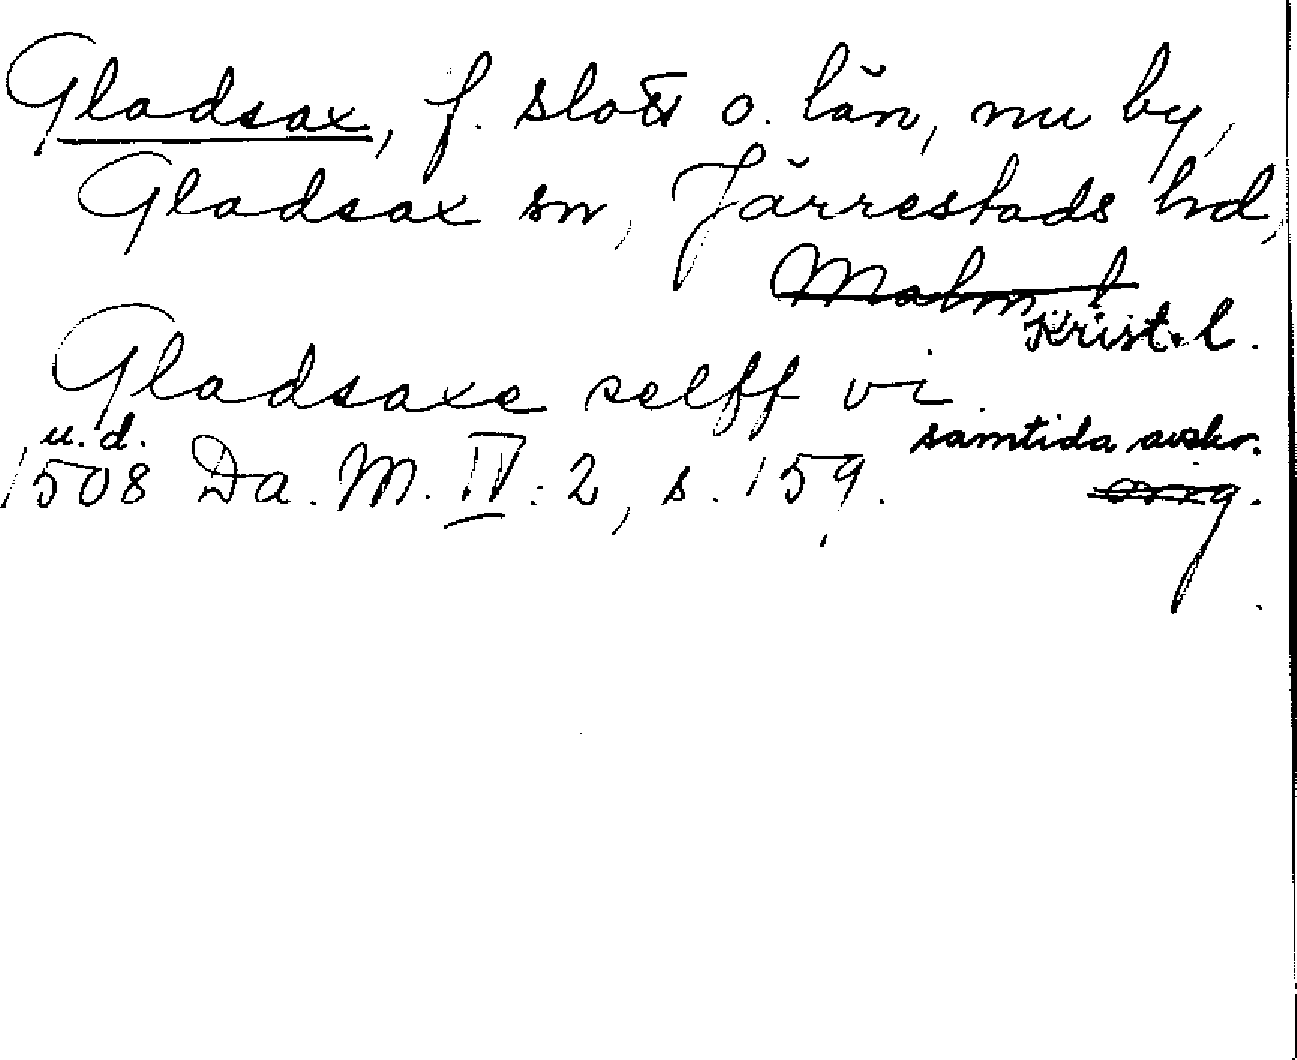 Gladsax, f. slott o. län, nu by,
Gladsax sn, Järrestads hd,
Malm. l
Krist. l.
Gladsaxe selff vi
u. d.
samtida avskr.
1508 Da. M. IV: 2, s. 159.
orig.